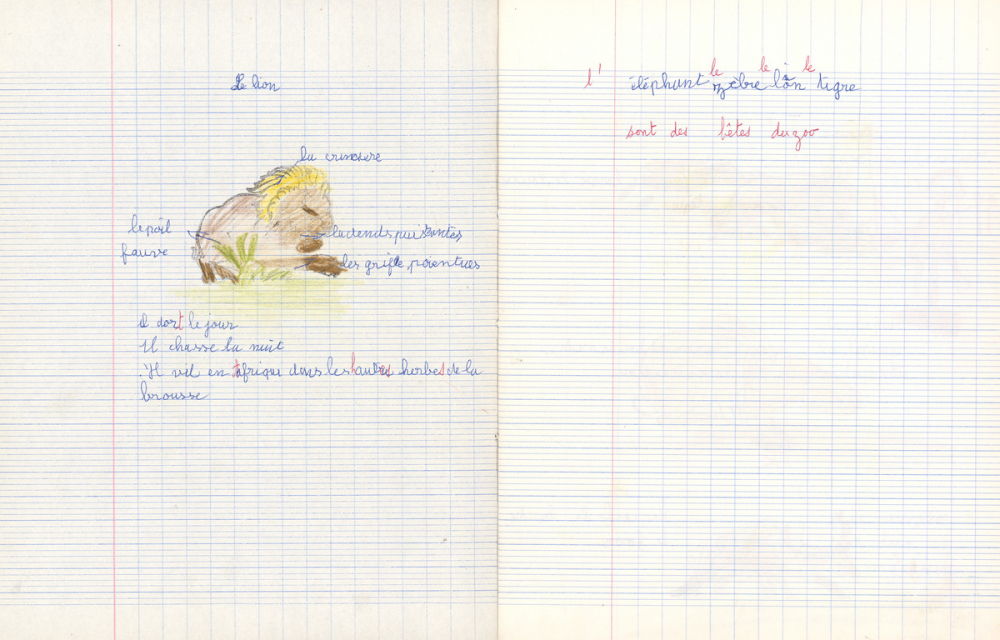 Le lion
la crinière
le poil
fauve
la dends puissantes
les grife pointues
Il dort le jour
Il chasse la nuit
Il vit en Afrique dans les hautes herbes de la
brousse
l' éléphant le zèbre le lion le tigre
sont des bêtes du zoo